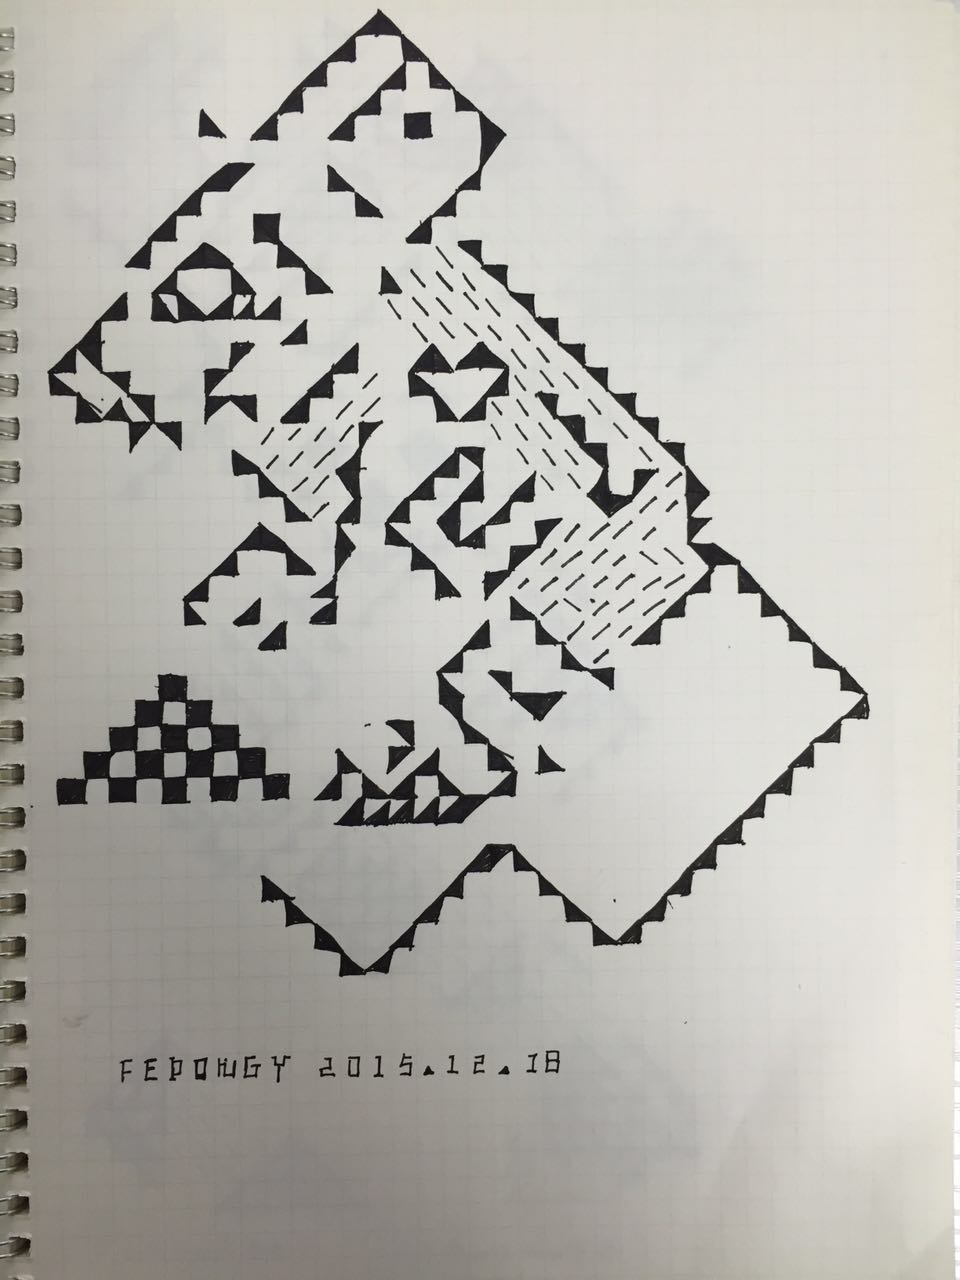 FEDOHGY 2015.12.18